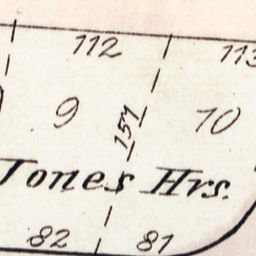 112 113
9 157 10
Jones Hrs.
82 81